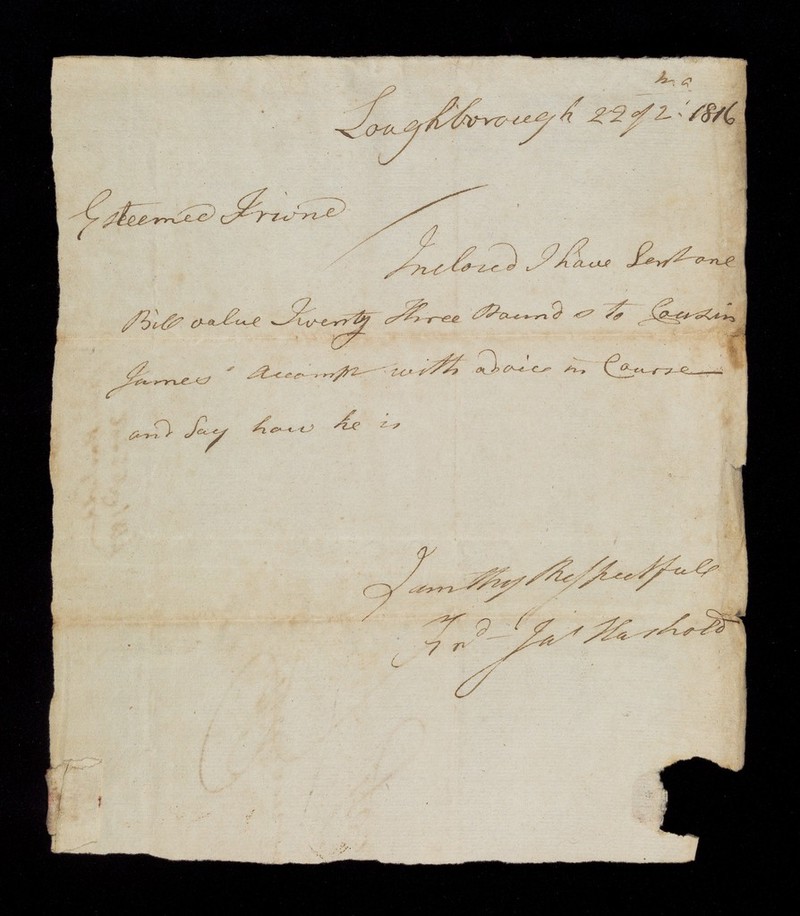 Loughborough 22 of 2 mo 1816
Esteemed Friend
Inclosed I have Sent one
Bill value Twenty three Pounds to Cousin
James' Accompt with advice in Course
and Say how he is
I am thy Respectfull
Frd Jas Hashold